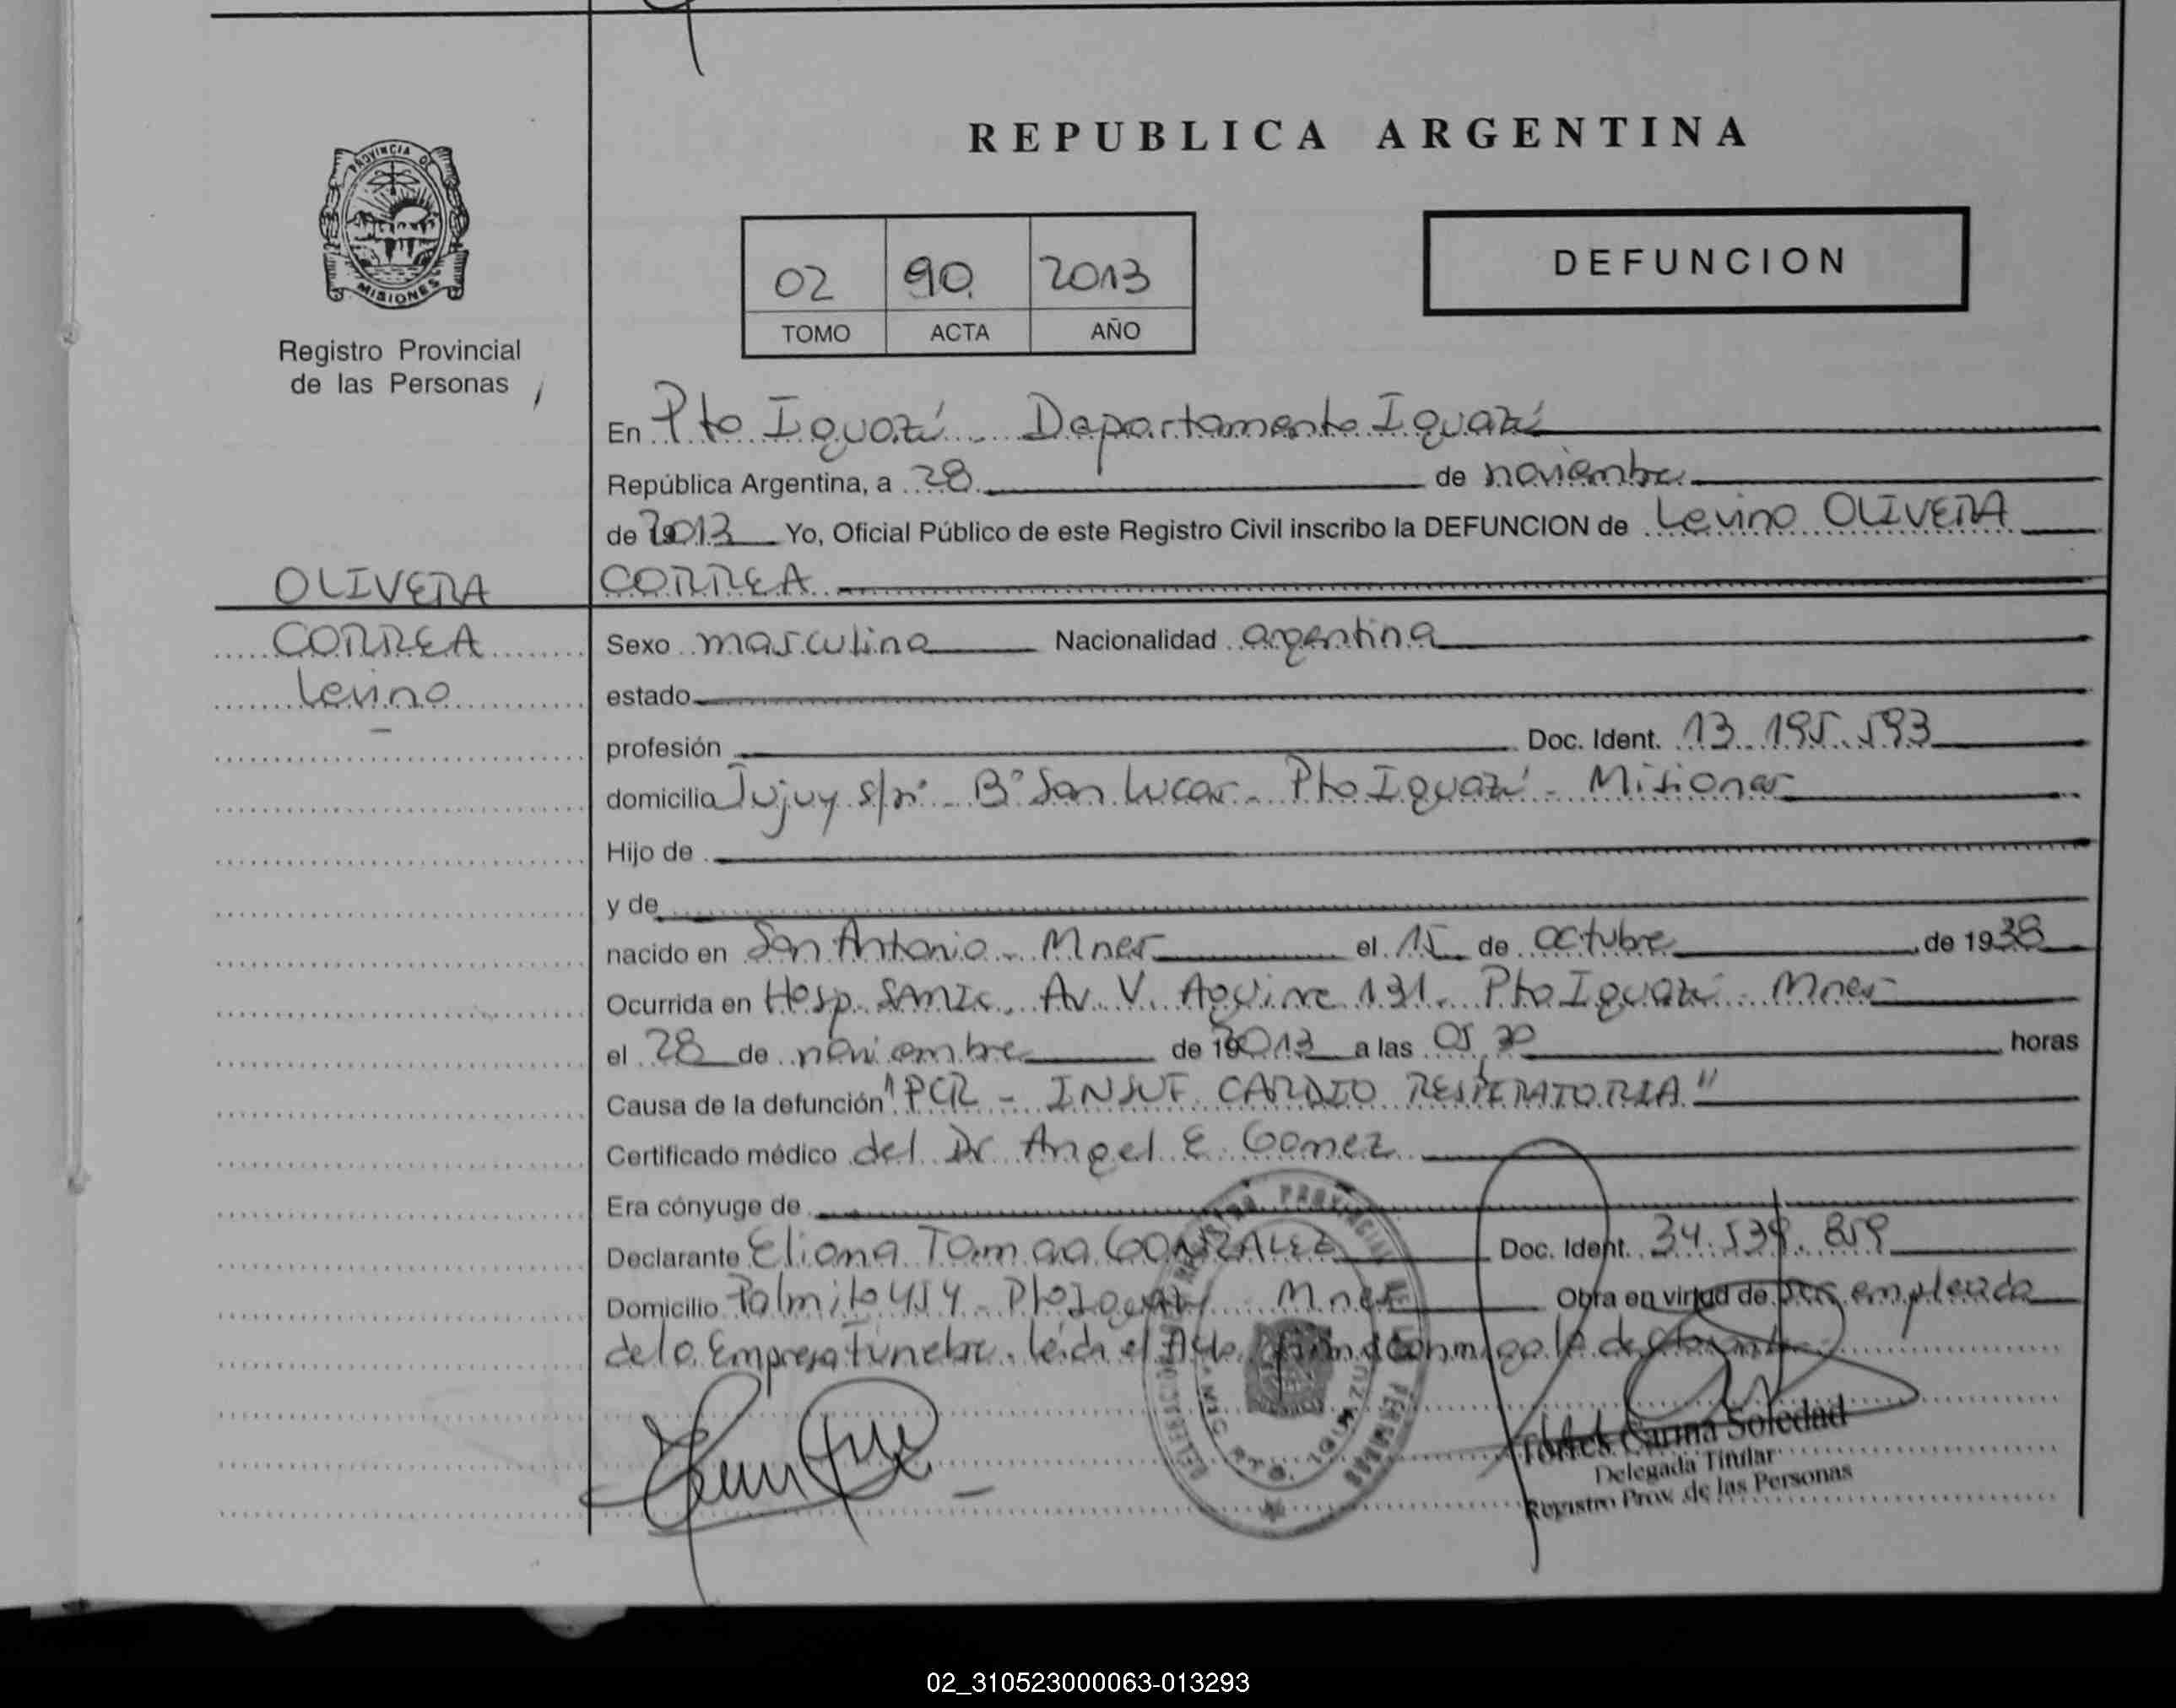 REPUBLICA ARGENTINA
PROVINCIA DE
MISIONES
Registro Provincial
de las Personas
DEFUNCION
02 90 2013
TOMO ACTA AÑO
En Pto Iguazú - Departamento Iguazú
República Argentina, a 28 de noviembre
de 2013 Yo, Oficial Público de este Registro Civil inscribo la DEFUNCION de Levino OLIVERA
CORREA
OLIVERA
CORREA
Levino
Sexo masculino Nacionalidad argentina
estado
profesión Doc. Ident. 13.195.593
domicilio Jujuy s/nº - Bº San Lucas - Pto Iguazú - Misiones
Hijo de
y de
nacido en San Antonio - Mnes el 15 de octubre de 1938
Ocurrida en Hosp. SAMIC, Av. V. Aguirre 131. Pto Iguazú - Mnes
el 28 de noviembre de 2013 a las 05,30 horas
Causa de la defunción "PCR - INSUF CARDIO RESPIRATORIA"
Certificado médico del Dr Angel E. Gomez
Era cónyuge de
Declarante Eliana GONZALEZ Doc. Ident. 34.539.859
Domicilio Palmito 454 - Pto Iguazú Mnes Obra en virtud de ser empleada
de la Empresa fúnebre. leída el Acta, firma conmigo la declarante
Torres Carina Soledad
Delegada Titular
Registro Prov. de las Personas
02_310523000063-013293